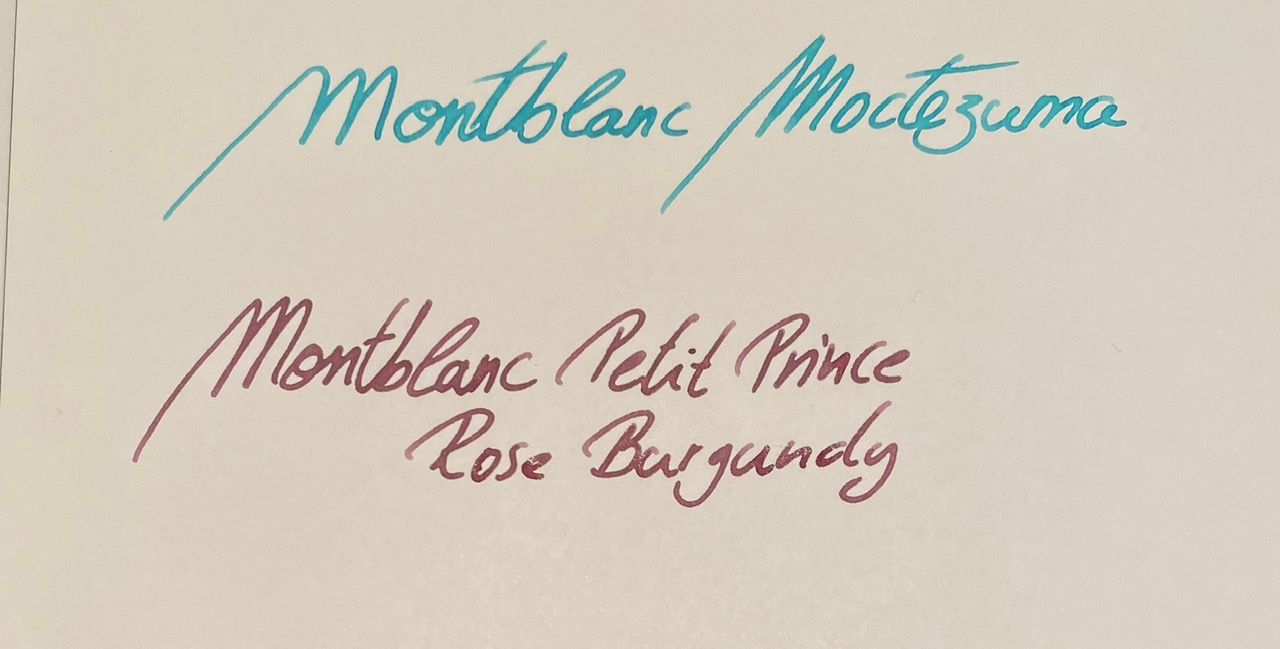 Montblanc Moctezuma
Montblanc Petit Prince
Rose Burgundy